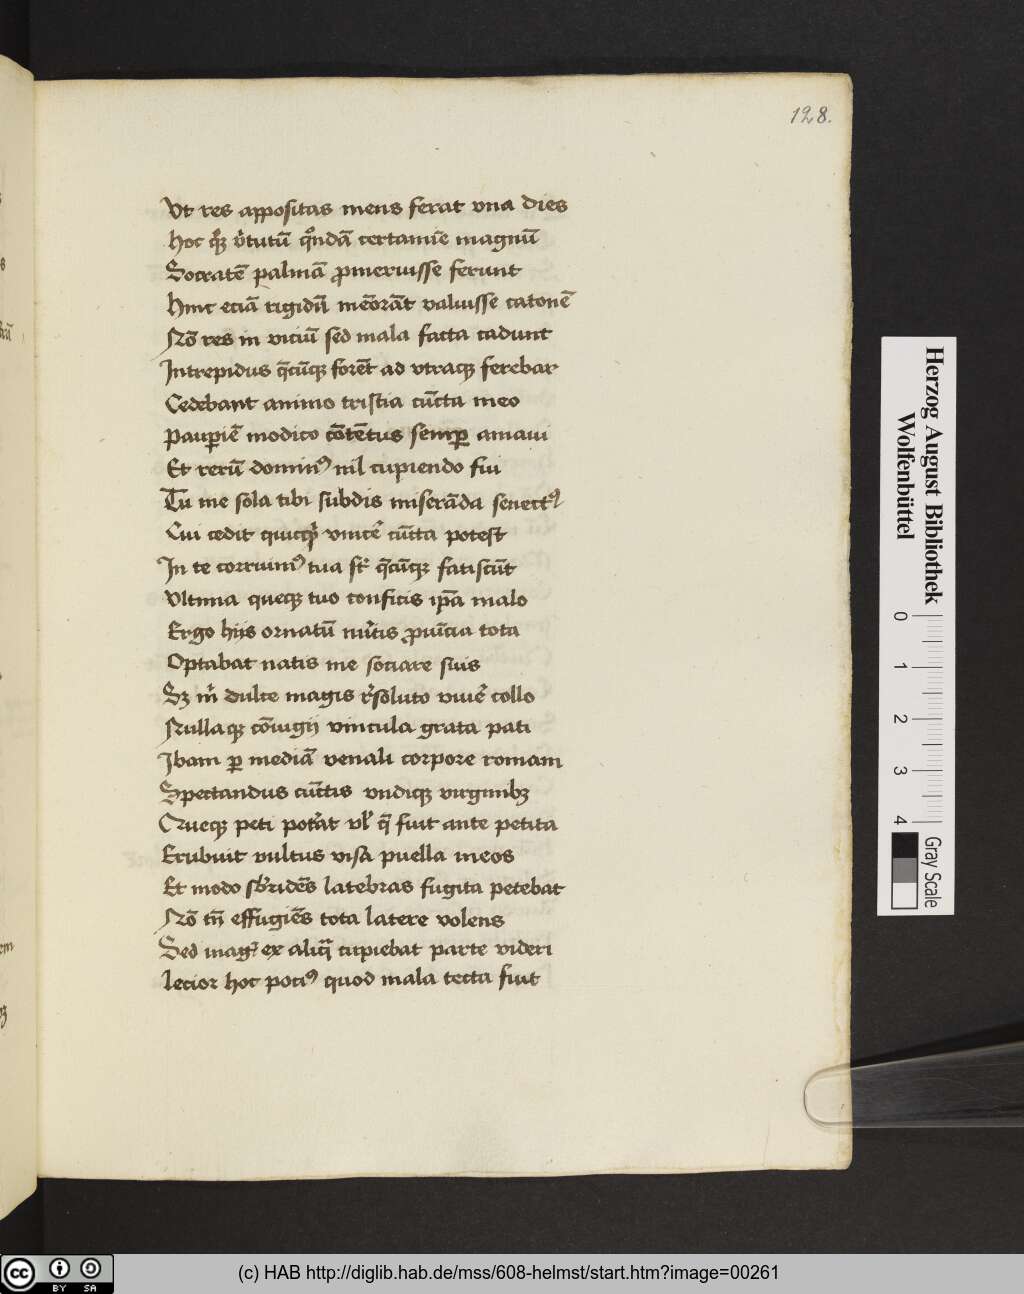 128.
Vt res appositas mens ferat vna dies
Hoc qȝ v̓tutū qn̄dā certamīe magnū
Socratē palmā ꝓmeruisse ferunt
Hinc eciā rigidū mēorāt valuisse catonē
Nō res in viciū sed mala facta cadunt
Intrepidus q̄cūqȝ forēt ad vtraqȝ ferebar
Cedebant animo tristia cūcta meo
Paupīe modico cōtētus semꝑ amaui
Et rerū dominꝰ nil cupiendo fui
Tu me sola tibi subdis miserāda senectꝰ
Cui cedit quicqͥd vincē cūcta potest
In te corruimꝰ tua st̄ q̄cūqȝ fatiscūt
Vltima queqȝ tuo conficis ip̄a malo
Ergo hijs ornatū mītis ꝓuīcia tota
Optabat natis me sociare suis
Sȝ m̓ dulce magis r̓soluto viuē collo
Nullaqȝ cōiugij vincula grata pati
Ibam ꝑ mediā venali corpore romam
Spectandus cūctis vndiqȝ virginibȝ
Queqȝ peti pot̓at vl̓ q̄ fuit ante petita
Erubuit vultus visa puella meos
Et modo sb̓ridēs latebras fugita petebat
Nō tn̄ effugiēs tota latere volens
Sed mag̓ ex aliq̄ cupiebat parte videri
lecior hoc pociꝰ quod mala tecta fuit
Herzog August Bibliothek
Wolfenbüttel
0 1 2 3 4
Gray Scale
cc BY SA
(c) HAB http://diglib.hab.de/mss/608-helmst/start.htm?image=00261